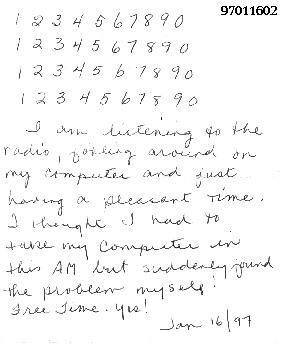 97011602
1 2 3 4 5 6 7 8 9 0
1 2 3 4 5 6 7 8 9 0
1 2 3 4 5 6 7 8 9 0
1 2 3 4 5 6 7 8 9 0
I am listening to the
radio, fooling around on
my computer and just
having a pleasant time.
I thought I had to
take my computer in
this AM but suddenly found
the problem myself!
Free Time. Yes!
Jan 16/97